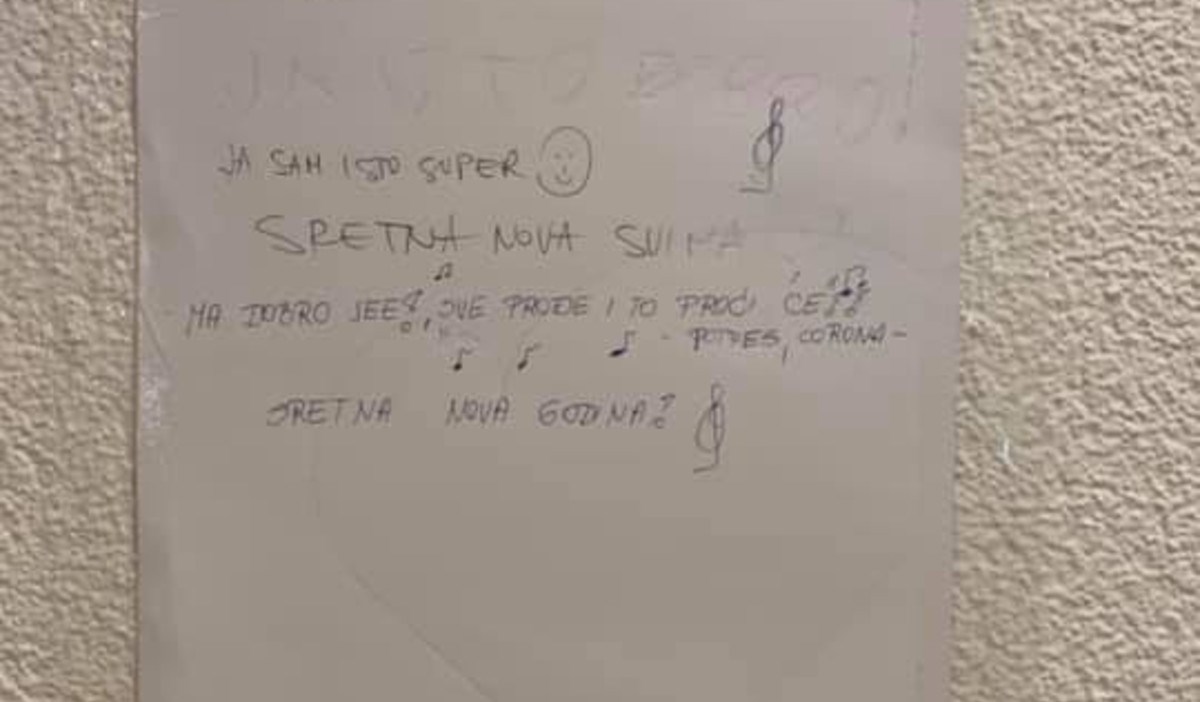 JA ISTO DOBRO!
JA SAM ISTO SUPER
SRETNA NOVA SVIMA
MA DOBRO JEE!, SVE PROĐE I TO PROĆI ĆE!!
- POTRES, CORONA -
SRETNA NOVA GODINA!